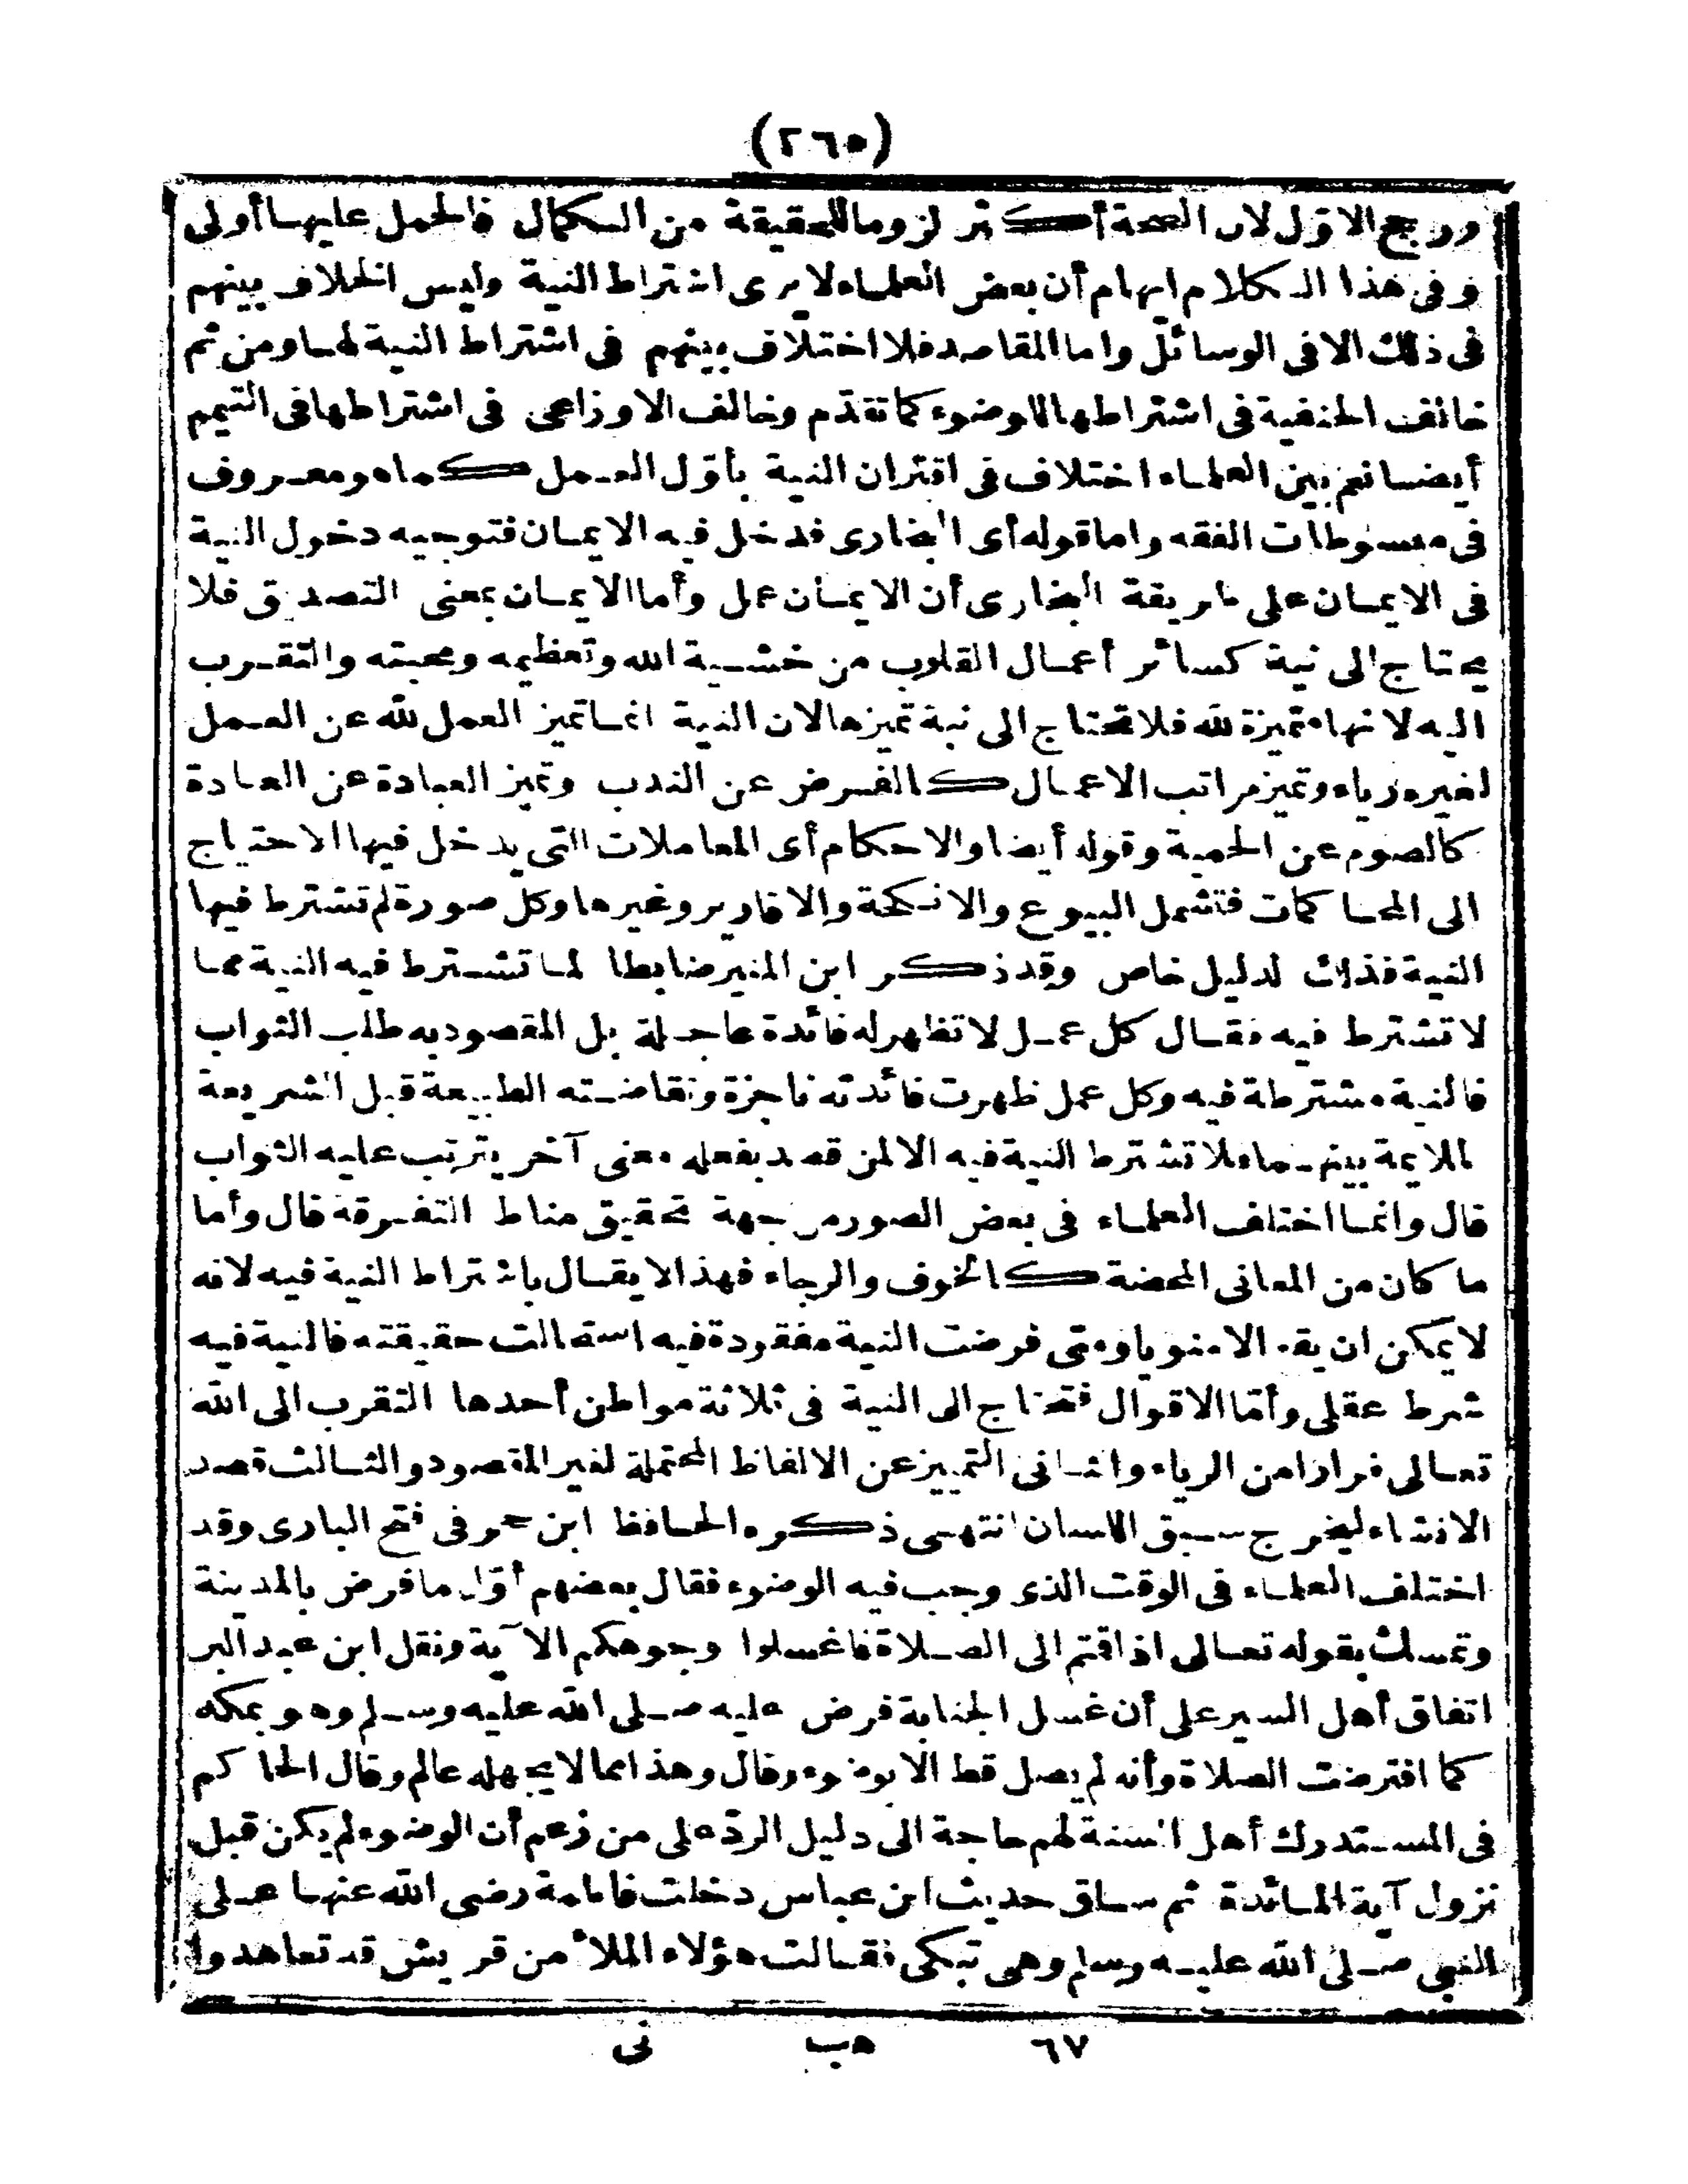 (٢٦٥)
ورجح الاوّل لان الصحة أكثر لزوما للحقيقة من الكمال فالحمل عليها أولى
وفى هذا الكلام ايهام أن بعض العلماء لا يرى اشتراط النية وليس الخلاف بينهم
فى ذلك الا فى الوسائل واما المقاصد فلا اختلاف بينهم فى اشتراط النية لها ومن ثم
خالف الحنفية فى اشتراطها للوضوء كما تقدّم وخالف الاوزاعى فى اشتراطها فى التيمم
أيضا نعم بين العلماء اختلاف فى اقتران النية بأوّل العمل كما هو معروف
فى مبسوطات الفقه واما قوله أى البخارى فدخل فيه الايمان فتوجيه دخول النية
فى الايمان على طريقة البخارى أن الايمان عمل وأما الايمان بمعنى التصديق فلا
يحتاج الى نية كسائر أعمال القلوب من خشية الله وتعظيمه ومحبته والتقرب
اليه لانها متميزة لله فلا تحتاج الى نية تميزها لان النية انما تميز العمل لله عن العمل
لغيره رياء وتميز مراتب الاعمال كالفرض عن الندب وتميز العبادة عن العادة
كالصوم عن الحمية وقوله أيضا والاحكام أى المعاملات التى يدخل فيها الاحتياج
الى المحاكمات فتشمل البيوع والانكحة والاقارير وغيرها وكل صورة لم تشترط فيها
النية فذلك لدليل خاص وقد ذكر ابن المنير ضابطا لما تشترط فيه النية مما
لا تشترط فيه فقال كل عمل لا تظهر له فائدة عاجلة بل المقصود به طلب الثواب
فالنية مشترطة فيه وكل عمل ظهرت فائدته ناجزة وتقاضته الطبيعة قبل الشريعة
لملايمة بينهما فلا تشترط النية فيه الا لمن قصد بفعله معنى آخر يترتب عليه الثواب
قال وانما اختلف العلماء فى بعض الصور من جهة تحقيق مناط التفرقة قال وأما
ما كان من المعانى المحضة كالخوف والرجاء فهذا لا يقال باشتراط النية فيه لانه
لا يمكن ان يقع الا منويا ومتى فرضت النية مفقودة فيه استحالت حقيقته فالنية فيه
شرط عقلى وأمّا الاقوال فتحتاج الى النية فى ثلاثة مواطن أحدها التقرب الى الله
تعالى فرارا من الرياء والثانى التمييز عن الالفاظ المحتملة لغير المقصود والثالث قصد
الانشاء ليخرج سبق اللسان انتهى ذكره الحافظ ابن حجر فى فتح البارى وقد
اختلف العلماء فى الوقت الذى وجب فيه الوضوء فقال بعضهم أوّل ما فرض بالمدينة
وتمسك بقوله تعالى اذا قتم الى الصلاة فاغسلوا وجوهكم الآية ونقل ابن عبد البر
اتفاق أهل السير على أن غسل الجنابة فرض عليه صلى الله عليه وسلم وهو بمكه
كما افترضت الصلاة وأنه لم يصل قط الا بوضوء وقال وهذا مما لا يجهله عالم وقال الحاكم
فى المستدرك أهل السنة لهم حاجة الى دليل الردّ على من زعم أن الوضوء لم يكن قبل
نزول آية المائدة ثم ساق حديث ابن عباس دخلت فاطمة رضى الله عنها على
النبى صلى الله عليه وسلم وهى تبكى فقالت هؤلاء الملأ من قريش قد تعاهدوا
٦٧ هب نى